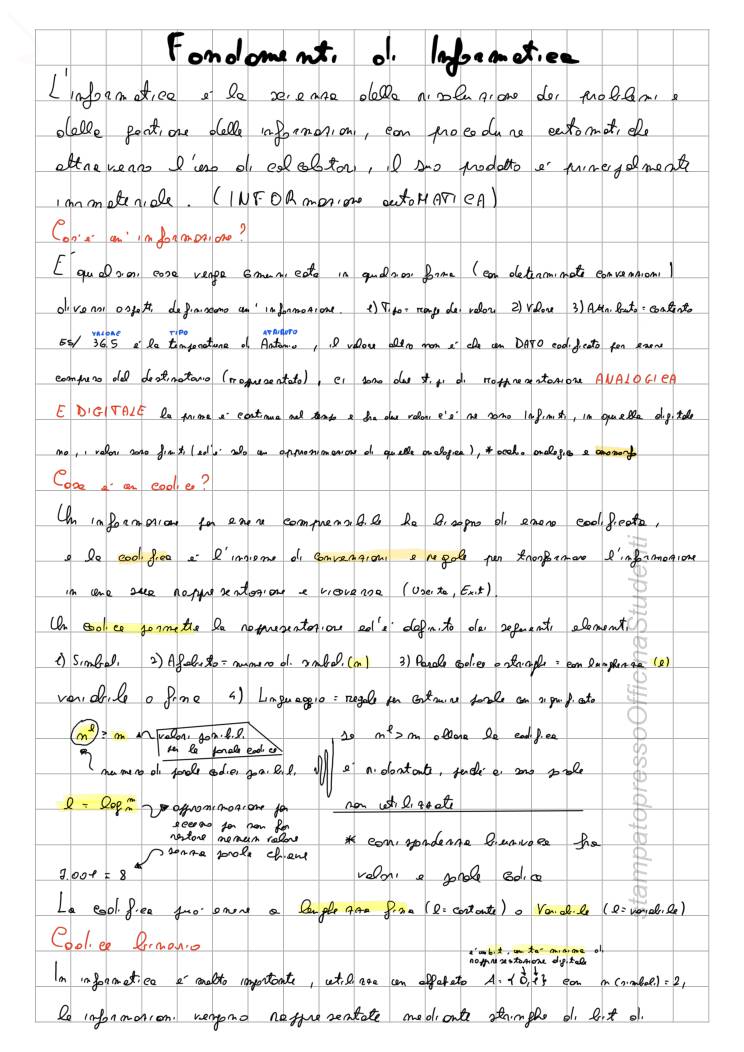 Fondamenti di Informatica
L'informatica è la scienza della risoluzione dei problemi e
della gestione delle informazioni, con procedure automatiche
attraverso l'uso di calcolatori, il suo prodotto è principalmente
immateriale. (INFORmazione autoMATICA)
Cos'è un'informazione?
E' qualsiasi cosa venga comunicata in qualsiasi forma (con determinate convenzioni)
diversi aspetti definiscono un'informazione. 1) Tipo = range dei valori 2) Valore 3) Attributo = contesto
VALORE TIPO ATTRIBUTO
ES/ 36.5 è la temperatura di Antonio, il valore altro non è che un DATO codificato per essere
compreso dal destinatario (rappresentato), ci sono due tipi di rappresentazione ANALOGICA
E DIGITALE la prima è continua nel tempo e fra due valori c'è ne sono infiniti, in quella digitale
no, i valori sono finiti (ed è solo un approssimazione di quella analogica), * occhio analogico e
Cosa è un codice?
Un informazione per essere comprensibile ha bisogno di essere codificata,
e la codifica è l'insieme di convenzioni e regole per trasformare l'informazione
in una sua rappresentazione e viceversa (Uscita, Exit).
Un codice permette la rappresentazione ed è definito dai seguenti elementi
1) Simboli 2) Alfabeto = numero di simboli (n) 3) Parole codice o stringhe = con lunghezza (l)
variabile o fissa 4) Linguaggio = regole per costruire parole con significato
n^l ≥ m valori possibili per le parole codice
numero di parole codici possibili
se n^l > m allora la codifica
è ridondante, perché ci sono parole
non utilizzate
l = log_n^m approssimazione per
eccesso per non far
restare nessun valore
senza parola chiave
7.001 = 8
* corrispondenza biunivoca fra
valori e parole codice
La codifica può essere a lunghezza fissa (l = costante) o variabile (l = variabile)
Codice binario
è un bit, unità minima di
rappresentazione digitale
In informatica è molto importante, utilizza un alfabeto A = {0,1} con n(simboli) = 2,
le informazioni vengono rappresentate mediante stringhe di bit di
StampatopressoOfficinaStudenti